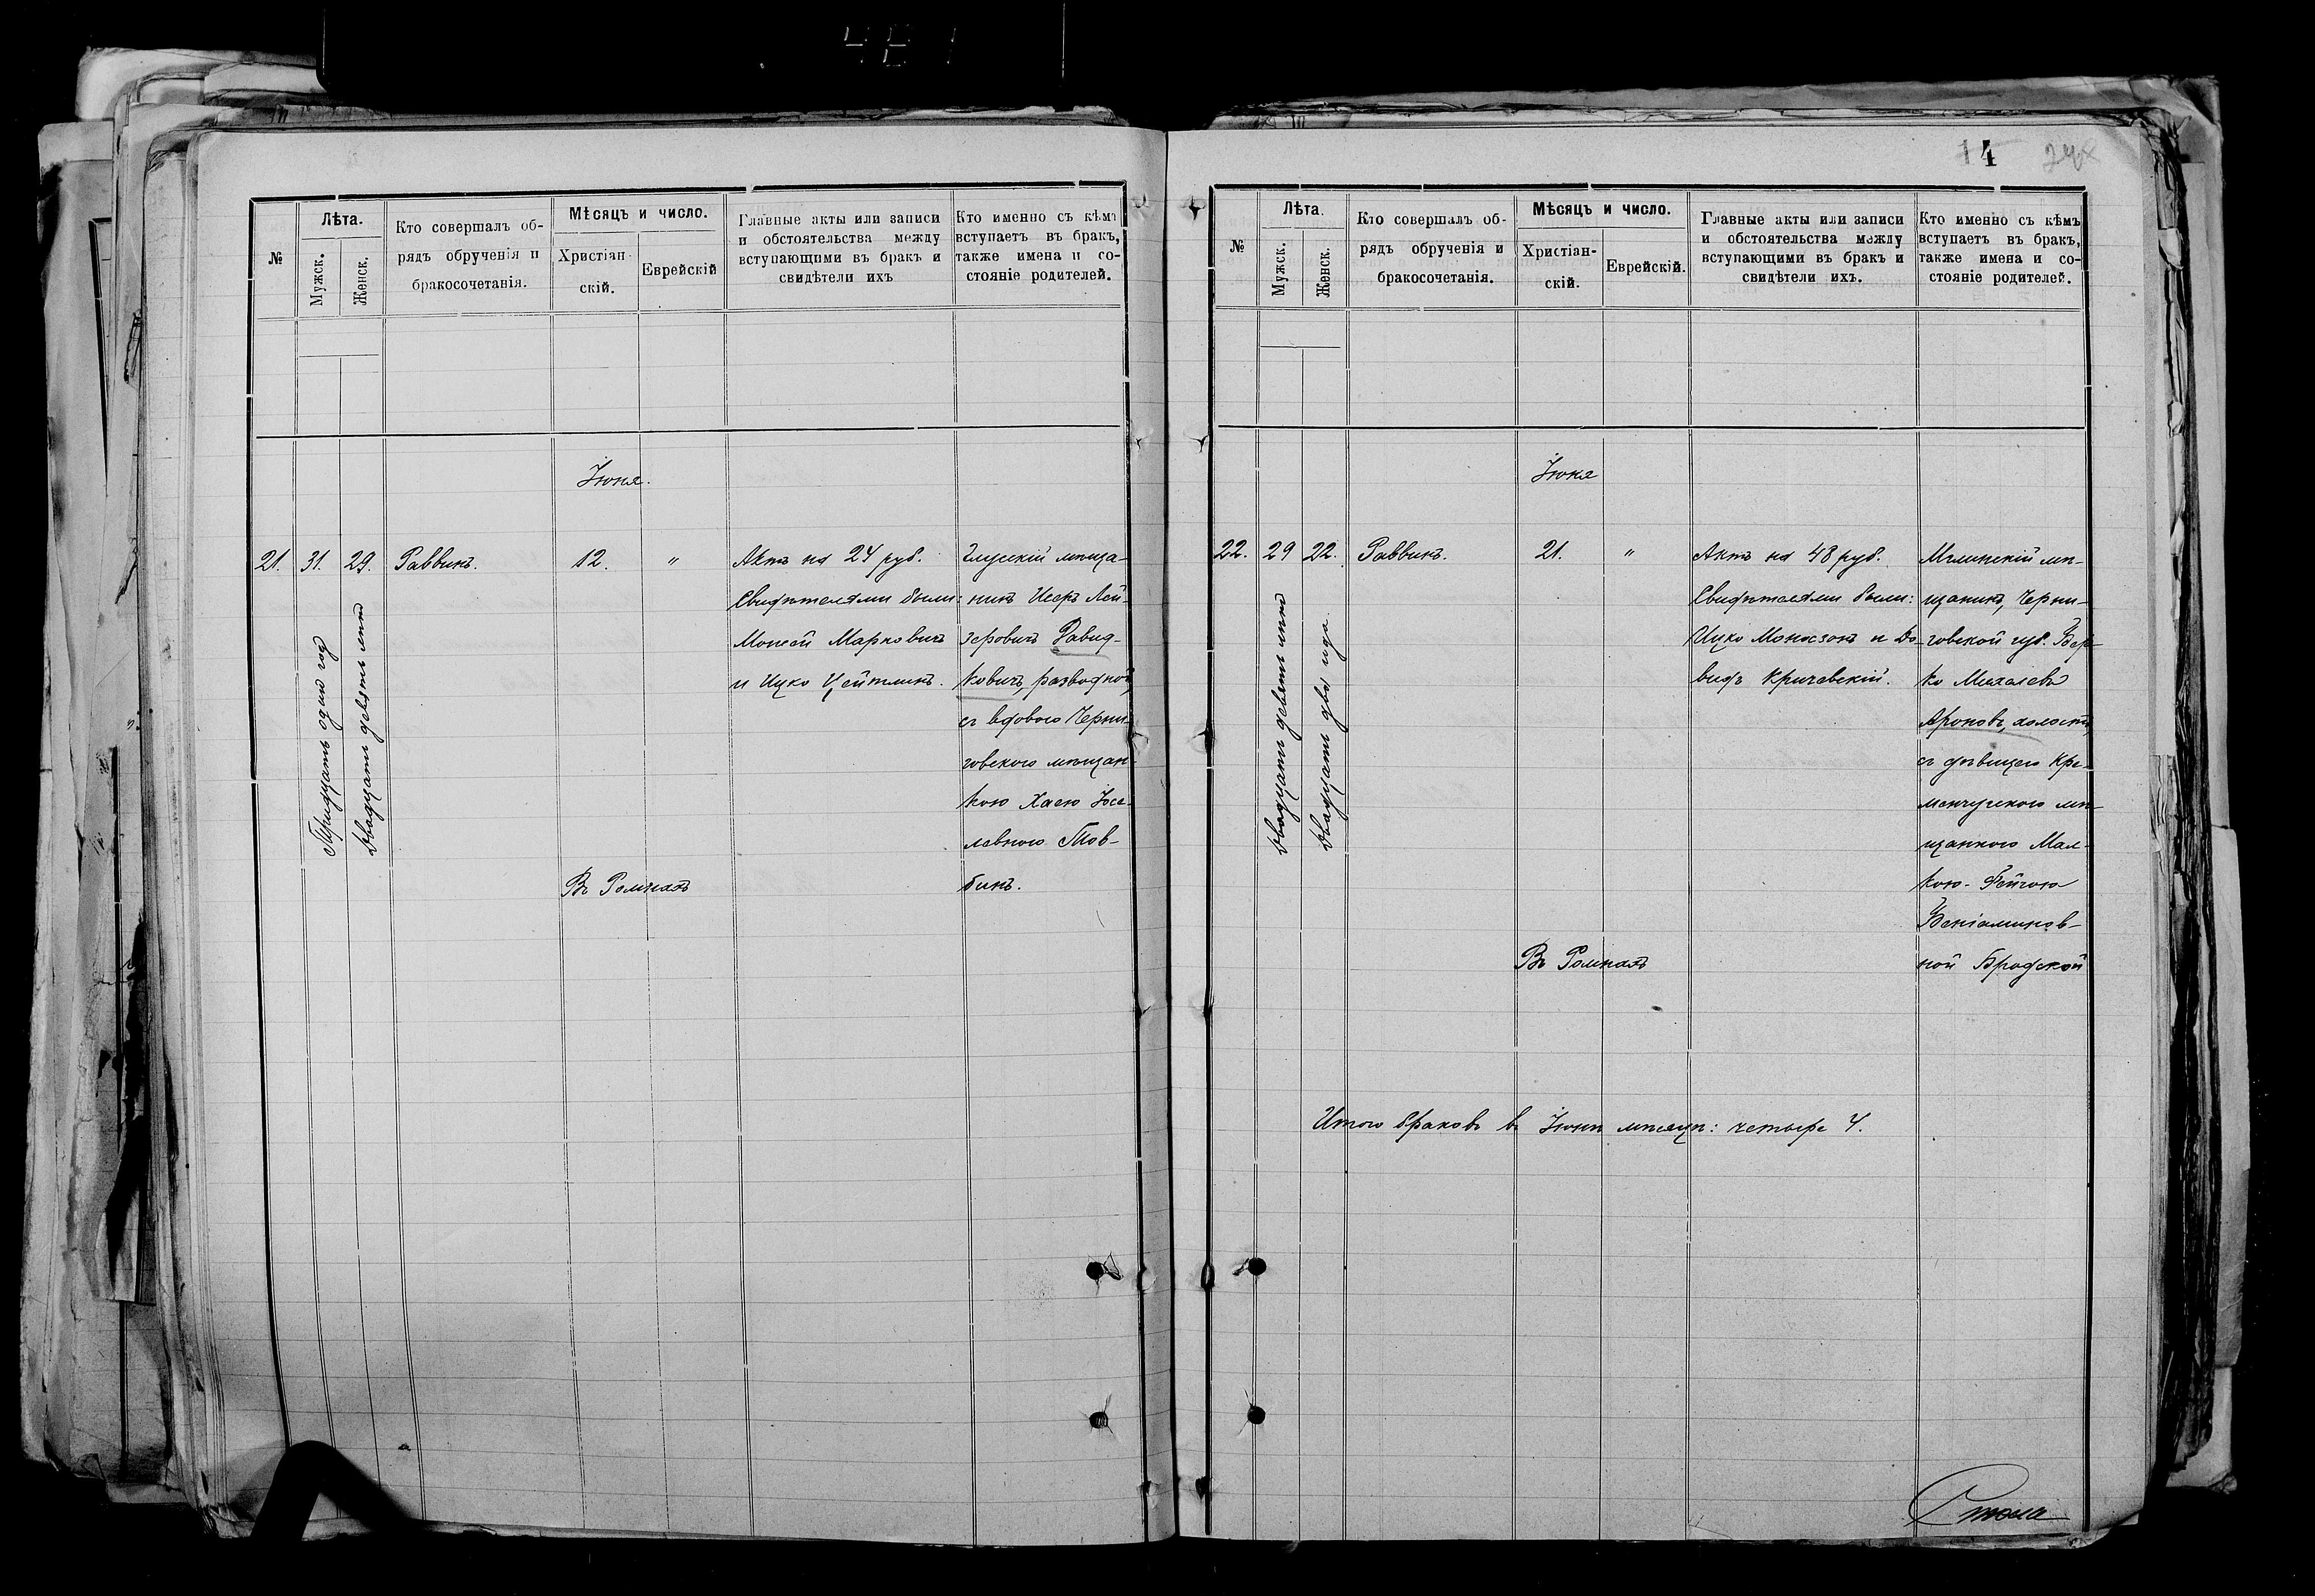 №
Лѣта.
Мужск.
Женск.
Кто совершалъ об-
рядъ обрученія и
бракосочетанія.
Мѣсяцъ и число.
Христіан-
скій.
Еврейскій
Главные акты или записи
и обстоятельства между
вступающими въ бракъ и
свидѣтели ихъ
Кто именно съ кѣмъ
вступаетъ въ бракъ,
также имена и со-
стояніе родителей.
Іюня.
21.
31.
Тридцать одинъ годъ
29.
двадцать девять лѣтъ
Раввинъ.
12.
"
Въ Ромнахъ
Актъ на 24 руб.
Свидѣтелями были:
Моисей Марковичъ
и Ицко Цейтлинъ.
Глусскій мѣща-
нинъ Исеръ Лей-
зеровичъ Давид-
ковичъ, разводной,
съ вдовою Черни-
говскою мѣщан-
кою Хаею Іосе-
левною Тов-
бинъ.
14
№
Лѣта.
Мужск.
Женск.
Кто совершалъ об-
рядъ обрученія и
бракосочетанія.
Мѣсяцъ и число.
Христіан-
скій.
Еврейскій.
Главные акты или записи
и обстоятельства между
вступающими въ бракъ и
свидѣтели ихъ.
Кто именно съ кѣмъ
вступаетъ въ бракъ,
также имена и со-
стояніе родителей.
Іюня
22.
29
двадцать девять лѣтъ
22.
двадцать два года
Раввинъ.
21.
"
Въ Ромнахъ
Актъ на 48 руб.
Свидѣтелями были:
Ицко Моносзонъ и Да-
видъ Кричевскій.
Мглинскій мѣ-
щанинъ, Черни-
говской губ. Бер-
ко Михалевъ
Ароновъ, холостъ,
съ дѣвицею Кре-
менчугскою мѣ-
щанкою Мал-
кою-Фейгою
Веніаминов-
ной Бродской
Итого браковъ въ Іюнѣ мѣсяцѣ: четыре 4.